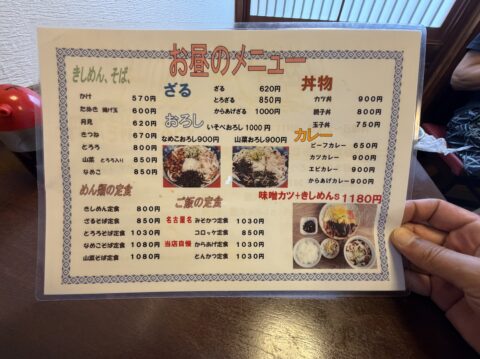 お昼のメニュー
きしめん、そば、
かけ 570円
たぬき 揚げ玉 600円
月見 620円
きつね 670円
とろろ 800円
山菜 とろろ入り 850円
なめこ 850円
めん類の定食
きしめん定食 800円
ざるそば定食 850円
とろろそば定食 1030円
なめこそば定食 1080円
山菜そば定食 1080円
ざる
ざる 620円
とろざる 850円
からあげざる 1000円
おろし
いそべおろし 1000円
なめこおろし900円
山菜おろし900円
ご飯の定食
名古屋名 みそかつ定食 1030円
コロッケ定食 850円
当店自慢 からあげ定食 1030円
とんかつ定食 1030円
丼物
カツ丼 900円
親子丼 800円
玉子丼 750円
カレー
ビーフカレー 650円
カツカレー 900円
エビカレー 900円
からあげカレー 900円
味噌カツ+きしめんS 1180円